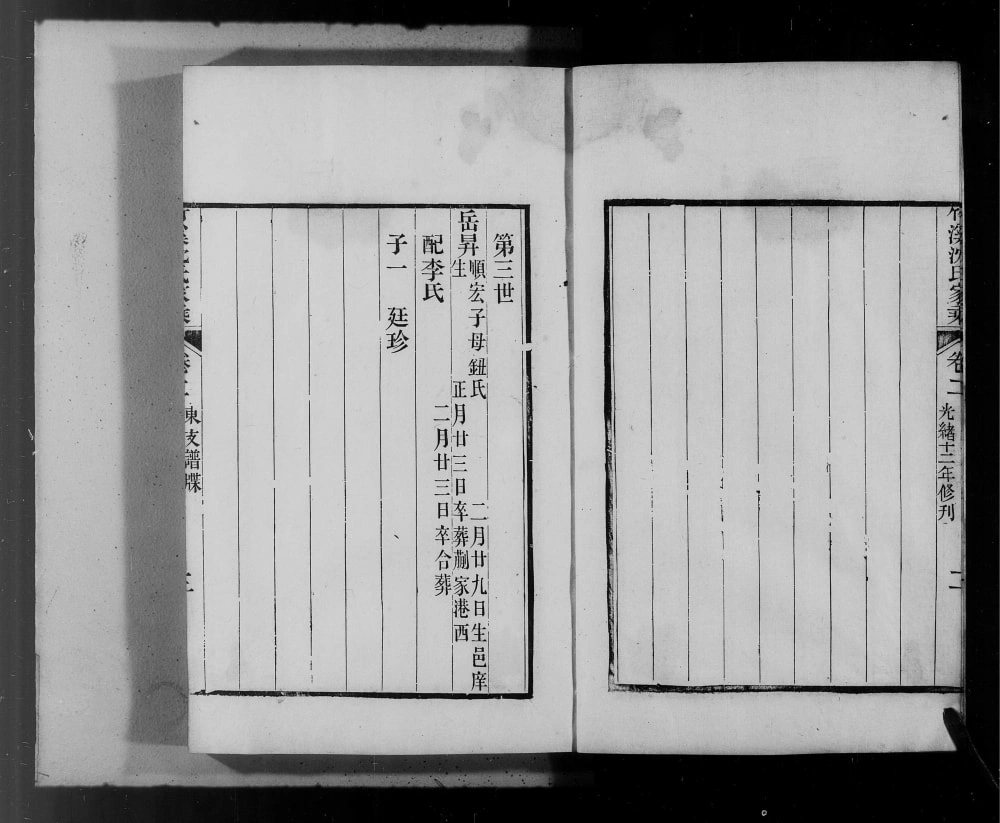 竹溪沈氏家乘 卷二 光緒十二年修刊 二
第三世
岳昇 順宏子母鈕氏 二月廿九日生邑庠
生 正月廿三日卒葬蒯家港西
配李氏 二月廿三日卒合葬
子一 廷珍
竹溪沈氏家乘 卷二 東支譜牒 三